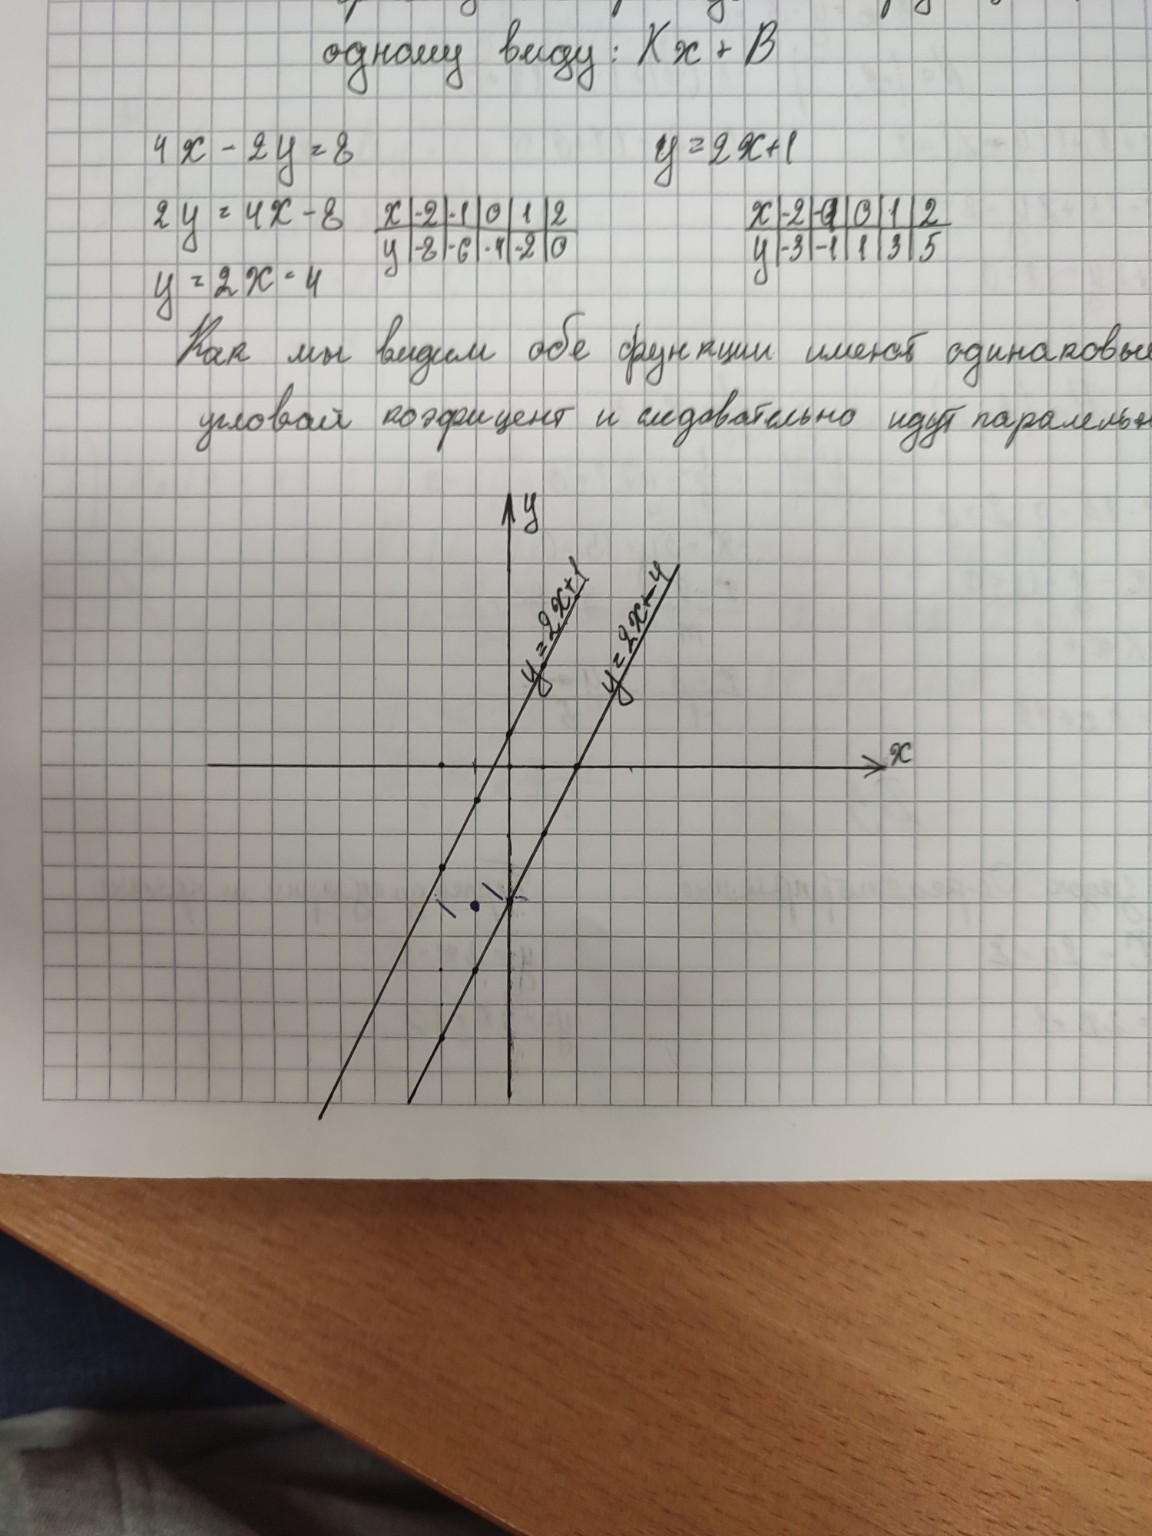 одному виду: Kx + B
4x - 2y = 8
y = 2x+1
2y = 4x - 8
x -2 -1 0 1 2
y -8 -6 -4 -2 0
x -2 -1 0 1 2
y -3 -1 1 3 5
y = 2x - 4
Как мы видим обе функции имеют одинаковые
угловой коэфицент и следовательно идут паралельн
y
y = 2x+1
y = 2x-4
x